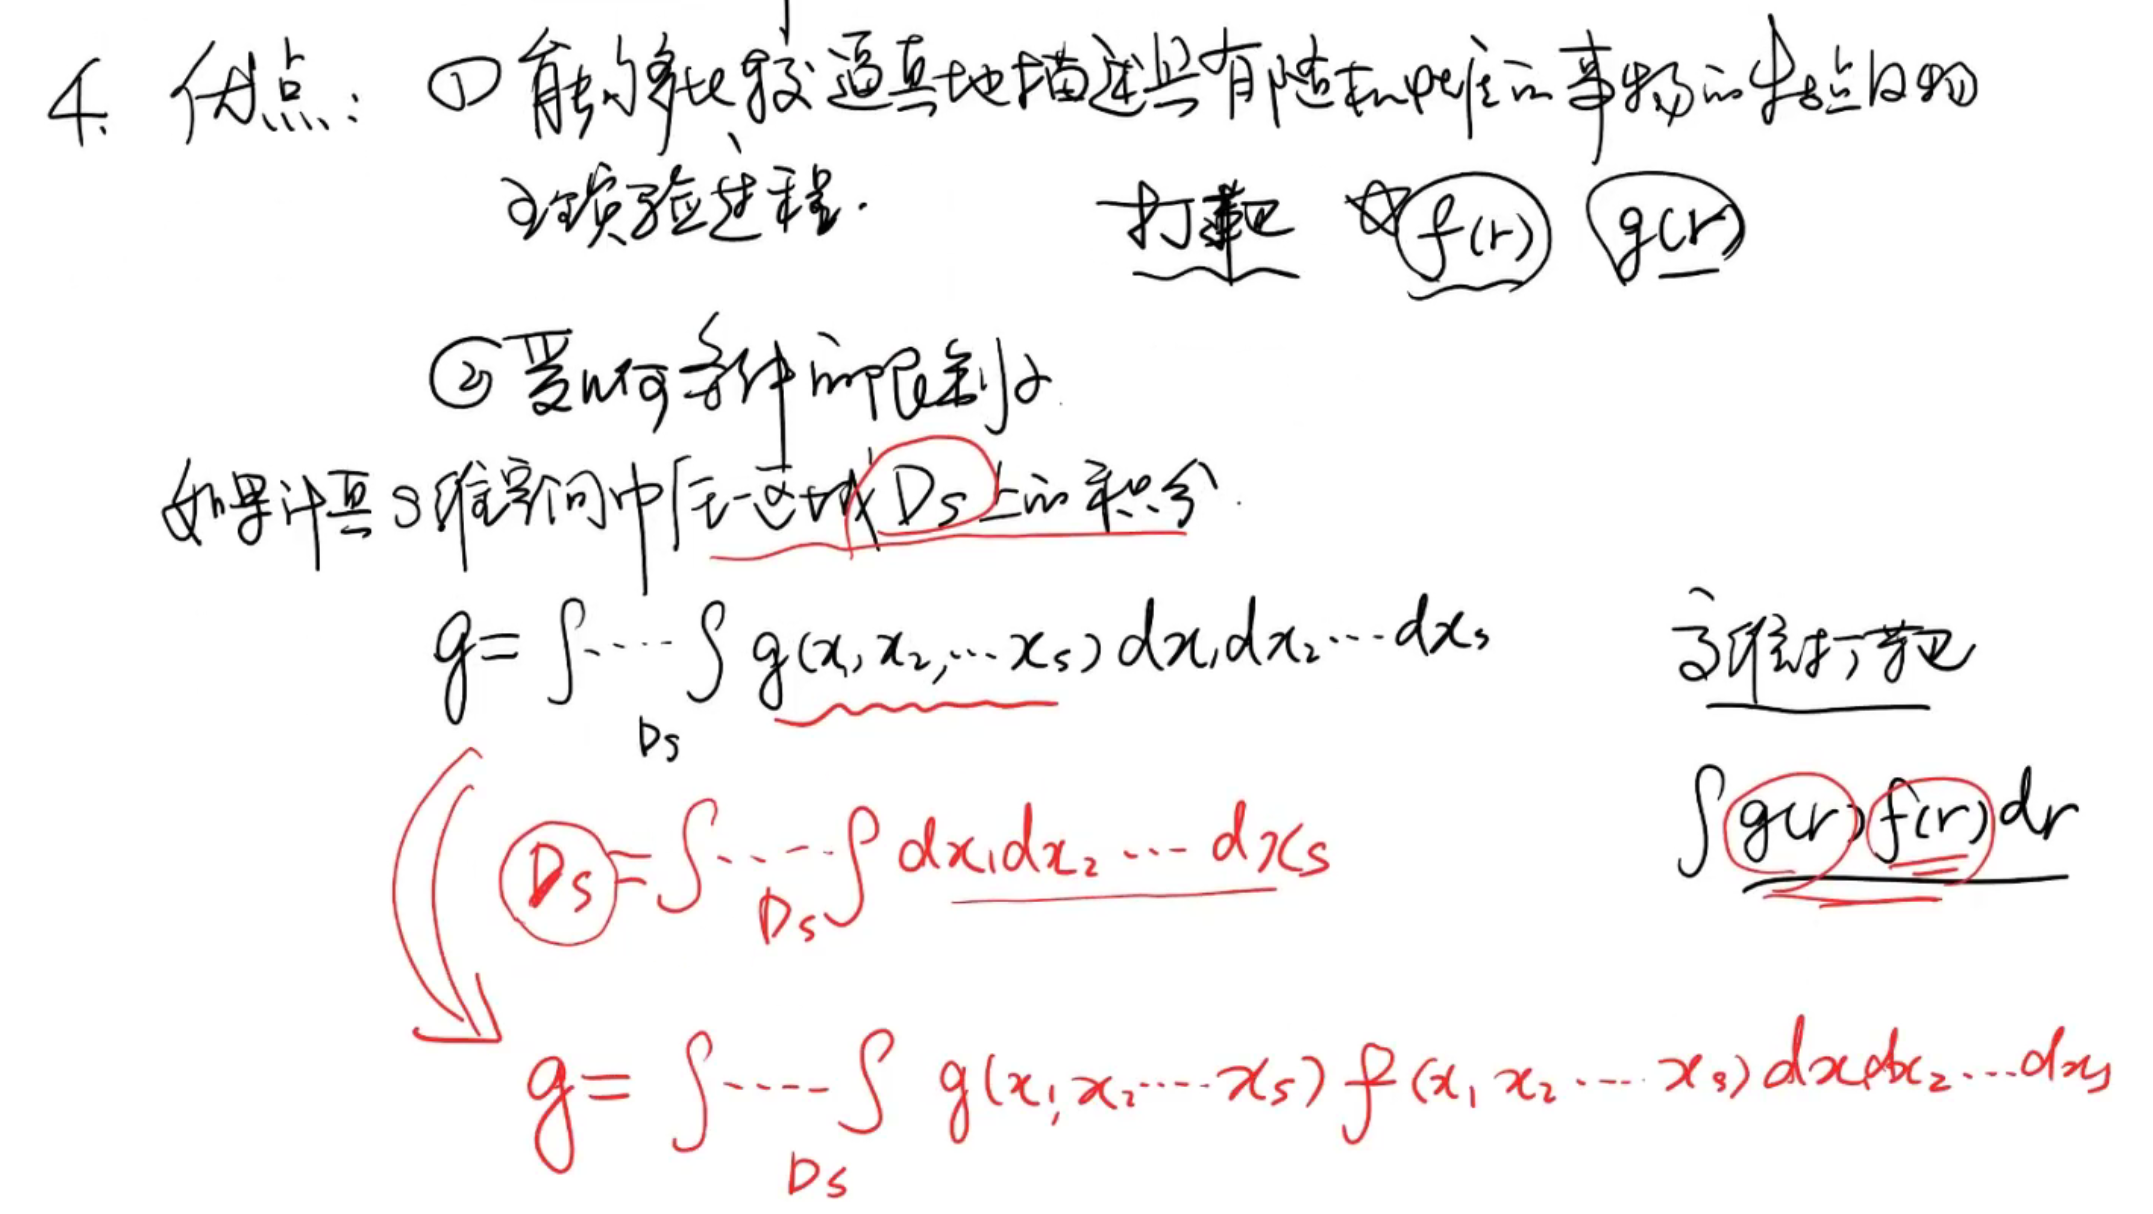 4. 优点: ① 能够比较逼真地描述具有随机性的事物的特点及物
理实验过程. 打靶 ☆ f(r) g(r)
② 受几何条件的限制小.
如果计算S维空间中任一区域Ds上的积分.
g = ∫⋯⋯∫ g(x₁, x₂, ⋯ xₛ) dx₁dx₂⋯dxₛ 高维打靶
Ds
Ds = ∫⋯⋯∫ dx₁dx₂⋯dxₛ ∫g(r)f(r)dr
Ds
g = ∫⋯⋯∫ g(x₁, x₂⋯⋯xₛ) f(x₁ x₂⋯⋯xₛ) dx₁dx₂⋯dxₛ
Ds